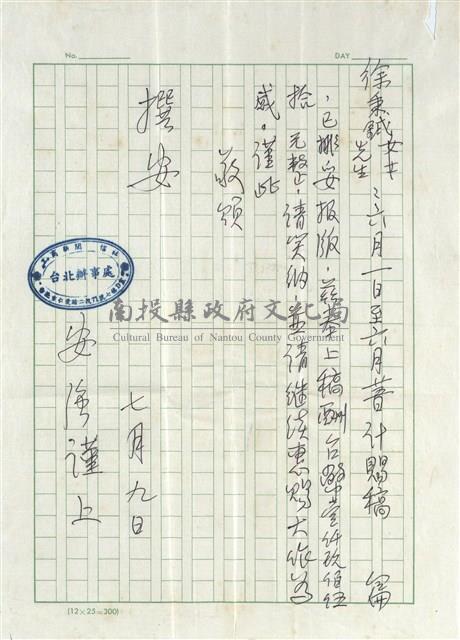 No.
DAY
徐秉鉞女士
先生：六月一日至六月暮計賜稿 篇
，已擲妥報版，茲奉上稿酬台幣壹仟玖佰伍
拾元整，請笑納，並請繼續惠賜大作為
感。謹此
敬頌
撰安
台北辦事處
南投縣政府文化局
Cultural Bureau of Nantou County Government
七月九日
謹上
(12×25=300)